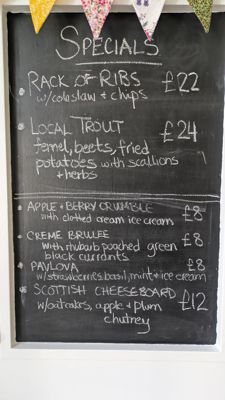 SPECIALS
RACK OF RIBS £22
w/ coleslaw + chips
LOCAL TROUT £24
fennel, beets, fried
potatoes with scallions
+ herbs
APPLE + BERRY CRUMBLE £8
with clotted cream ice cream
CREME BRULEE £8
with rhubarb poached green
black currants
PAVLOVA £8
w/strawberries, basil, mint + ice cream
SCOTTISH CHEESEBOARD £12
w/oatcakes, apple + plum
chutney